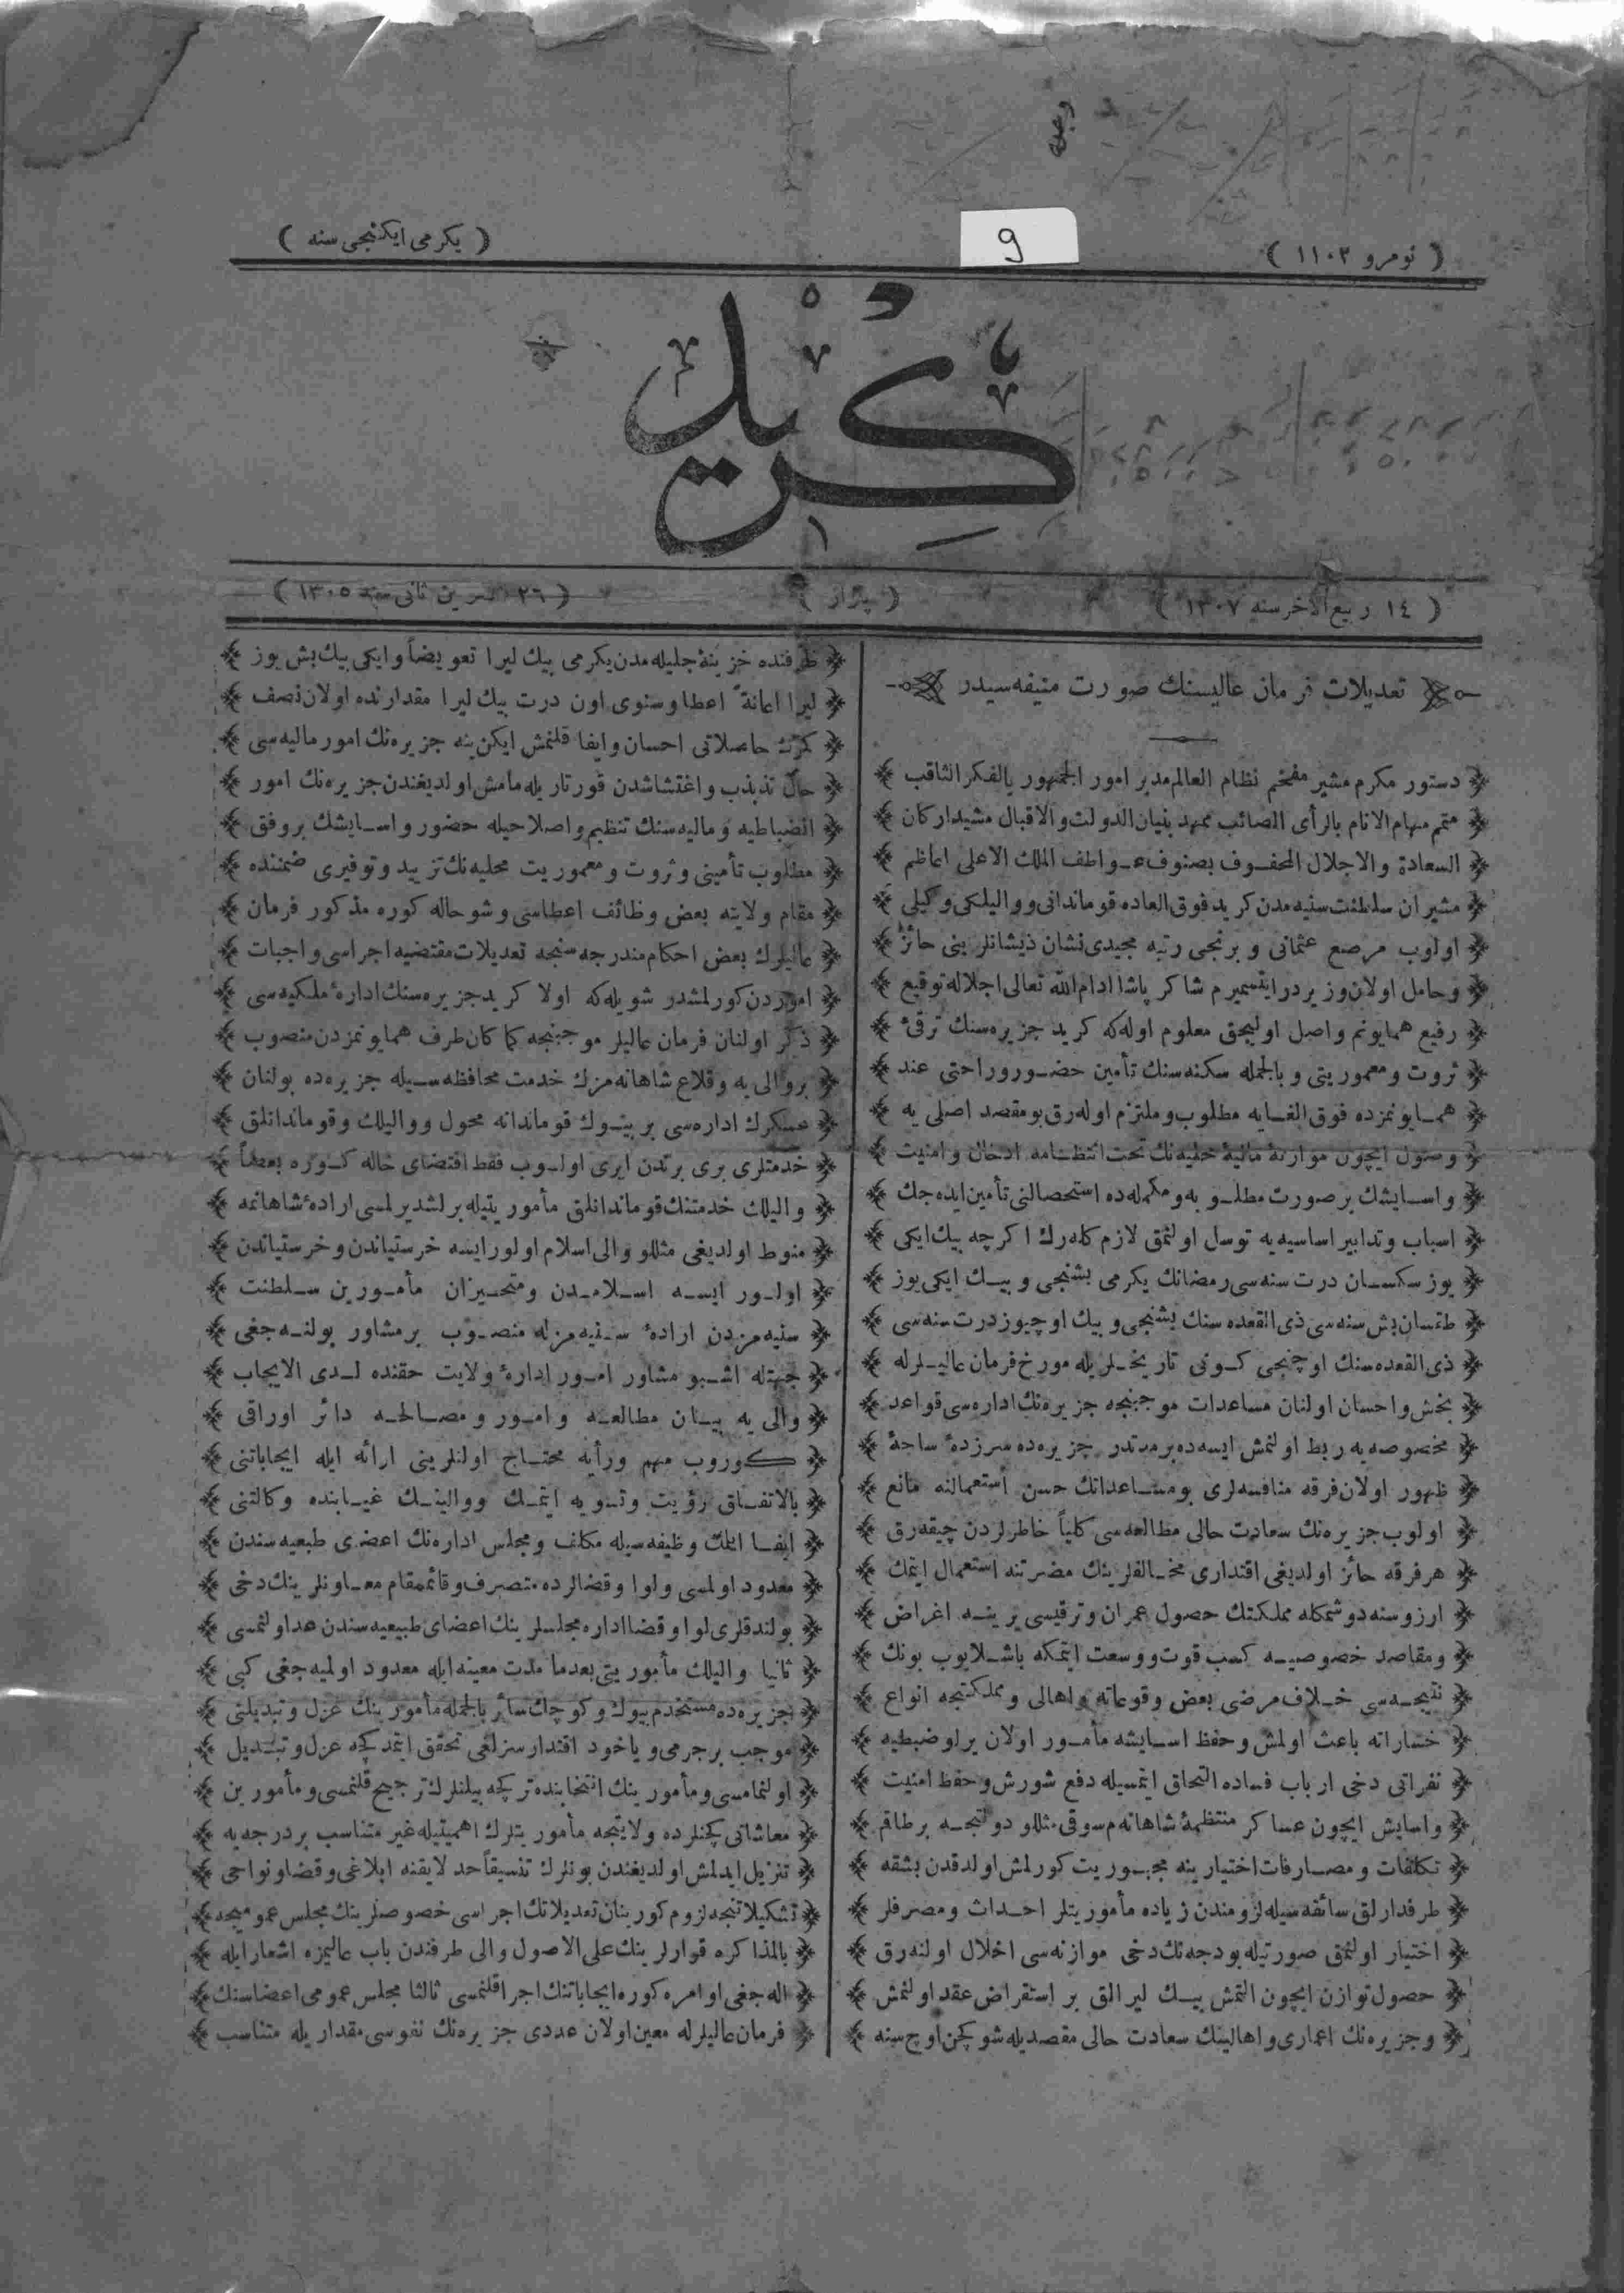 ( نومرو ١١٠٣ )
9
( يكرمى ايكنجى سنه )
كريد
( ١٤ ربيع الآخر سنه ١٣٠٧ )
( پازار )
( ٢٦ تشرين ثانى سنه ١٣٠٥ )
تعديلات فرمان عاليسنك صورت منيفه سيدر
دستور مكرم مشير مفخم نظام العالم مدبر امور الجمهور بالفكر الثاقب
متمم مهام الانام بالرأى الصائب ممهد بنيان الدولت والاقبال مشيد اركان
السعادة والاجلال المحفوف بصنوف عواطف الملك الاعلى اعاظم
مشيران سلطنت سنيه مدن كريد فوق العاده قوماندانى ووالىلكى وكيلى
اولوب مرصع عثمانى و برنجى رتبه مجيدى نشان ذيشانلرينى حائز
وحامل اولان وزير درايتسميرم شاكر پاشا ادام الله تعالى اجلاله توقيع
رفيع همايونم واصل اوليجق معلوم اوله كه كريد جزيره سنك ترقئ
ثروت ومعموريتى و بالجمله سكنه سنك تأمين حضور وراحتى عند
همايونمزده فوق الغايه مطلوب وملتزم اوله رق بومقصد اصلى يه
وصول ايچون موازنۀ ماليۀ محليه نك تحت انتظامه ادخال وامنيت
واسايشك برصورت مطلوبه ومكمله ده استحصالنى تأمين ايده جك
اسباب وتدابير اساسيه يه توسل اولنمق لازم كله رك اكرچه بيك ايكى
يوز سكسان درت سنه سى رمضانك يكرمى بشنجى و بيك ايكى يوز
طقسان بش سنه سى ذى القعده سنك بشنجى و بيك اوچيوز درت سنه سى
ذى القعده سنك اوچنجى كونى تاريخلريله مورخ فرمان عاليلرله
بخش واحسان اولنان مساعدات موجبنجه جزيره نك اداره سى قواعد
مخصوصه يه ربط اولنمش ايسه ده برمدتدر جزيره ده سرزدۀ ساحۀ
ظهور اولان فرقه منافسه لرى بومساعداتك حسن استعمالنه مانع
اولوب جزيره نك سعادت حالى مطالعه سى كلياً خاطرلردن چيقه رق
هر فرقه حائز اولديغى اقتدارى مخالفلرينك مضرتنه استعمال ايتمك
ارزوسنه دوشمكله مملكتك حصول عمران وترقيسى يرينه اغراض
ومقاصد خصوصيه كسب قوت ووسعت ايتمكه باشلايوب بونك
نتيجه سى خلاف مرضى بعض وقوعاته واهالى ومملكتجه انواع
خساراته باعث اولمش وحفظ اسايشه مأمور اولان يرلو ضبطيه
نفراتى دخى ارباب فساده التحاق ايتمسيله دفع شورش وحفظ امنيت
واسايش ايچون عساكر منتظمۀ شاهانه م سوقى مثللو دولتجه برطاقم
تكلفات ومصارفات اختيارينه مجبوريت كورلمش اولدقدن بشقه
طرفدارلق سائقه سيله لزومندن زياده مأموريتلر احداث ومصرفلر
اختيار اولنمق صورتيله بودجه نك دخى موازنه سى اخلال اولنه رق
حصول توازن ايچون التمش بيك ليرالق بر استقراض عقد اولنمش
وجزيره نك اعمارى و اهاليسنك سعادت حالى مقصديله شو كچن اوچ سنه
ظرفنده خزينۀ جليله مدن يكرمى بيك ليرا تعويضاً وايكى بيك بش يوز
ليرا اعانةً اعطا وسنوى اون درت بيك ليرا مقدارنده اولان نصف
كمرك حاصلاتى احسان وايفا قلنمش ايكن ينه جزيره نك امور ماليه سى
حال تذبذب واغتشاشدن قورتاريله مامش اولديغندن جزيره نك امور
انضباطيه وماليه سنك تنظيم واصلاحيله حضور واسايشك بروفق
مطلوب تأمينى وثروت ومعموريت محليه نك تزييد وتوفيرى ضمننده
مقام ولايته بعض وظائف اعطاسى وشو حاله كوره مذكور فرمان
عاليلرك بعض احكام مندرجه سنجه تعديلات مقتضيه اجراسى واجبات
اموردن كورلمشدر شويله كه اولا كريد جزيره سنك ادارۀ ملكيه سى
ذكر اولنان فرمان عاليلر موجبنجه كما كان طرف همايونمزدن منصوب
بروالى يه وقلاع شاهانه مزك خدمت محافظه سيله جزيره ده بولنان
عسكرك اداره سى بر بيوك قوماندانه محول ووالىلك وقوماندانلق
خدمتلرى برى برندن ايرى اولوب فقط اقتضاى حاله كوره بعضاً
والىلك خدمتنك قوماندانلق مأموريتيله برلشديرلمسى ارادۀ شاهانه مه
منوط اولديغى مثللو والى اسلام اولور ايسه خرستياندن وخرستياندن
اولور ايسه اسلامدن ومتحيزان مأمورين سلطنت
سنيه مزدن ارادۀ سنيه مزله منصوب برمشاور بولنه جغى
جهتله اشبو مشاور امور ادارۀ ولايت حقنده لدى الايجاب
والى يه بيان مطالعه وامور ومصالحه دائر اوراقى
كوروب مهم ورأيه محتاج اولنلرينى ارائه ايله ايجاباتنى
بالاتفاق رؤيت وتسويه ايتمك ووالينك غيابنده وكالتنى
ايفا ايلمك وظيفه سيله مكلف ومجلس اداره نك اعضاى طبيعيه سندن
معدود اولمسى ولوا وقضالرده متصرف وقائممقام معاونلرينك دخى
بولندقلرى لوا وقضا اداره مجلسلرينك اعضاى طبيعيه سندن عد اولنمسى
ثانيا والىلك مأموريتى بعدما مدت معينه ايله معدود اولميه جغى كبى
جزيره ده مستخدم بيوك وكوچك سائر بالجمله مأمورينك عزل وتبديلنى
موجب برجرمى و ياخود اقتدارسزلغى تحقق ايتمدكجه عزل وتبديل
اولنمامسى ومأمورينك انتخابنده تركجه بيلنلرك ترجيح قلنمسى ومأمورين
معاشاتى كچنلرده ولايتجه مأموريتلرك اهميتيله غير متناسب بردرجه يه
تنزيل ايدلمش اولديغندن بونلرك تنسيقاً حد لايقنه ابلاغى وقضا ونواحى
تشكيلاتنجه لزوم كورينان تعديلاتك اجراسى خصوصلرينك مجلس عموميجه
بالمذاكره قرارلرينك على الاصول والى طرفندن باب عاليمزه اشعاريله
اله جغى اوامره كوره ايجاباتنك اجرا قلنمسى ثالثا مجلس عمومى اعضاسنك
فرمان عاليلرله معين اولان عددى جزيره نك نفوسى مقداريله متناسب